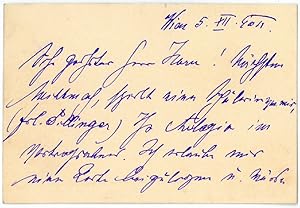 Wien 5. XII. 9011.
Sehr geehrter Herr Korn! Nächsten
Mittwoch, spielt eine Schülerin von mir,
(Frl. Dillinger) Ihr Adagio im
Vortragsabend. Ich erlaube mir
eine Karte beizulegen u. würde